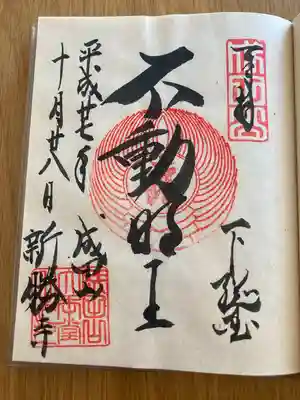 奉拝
下総国
不動明王
平成廿七年
成田山
十月廿八日
新勝寺